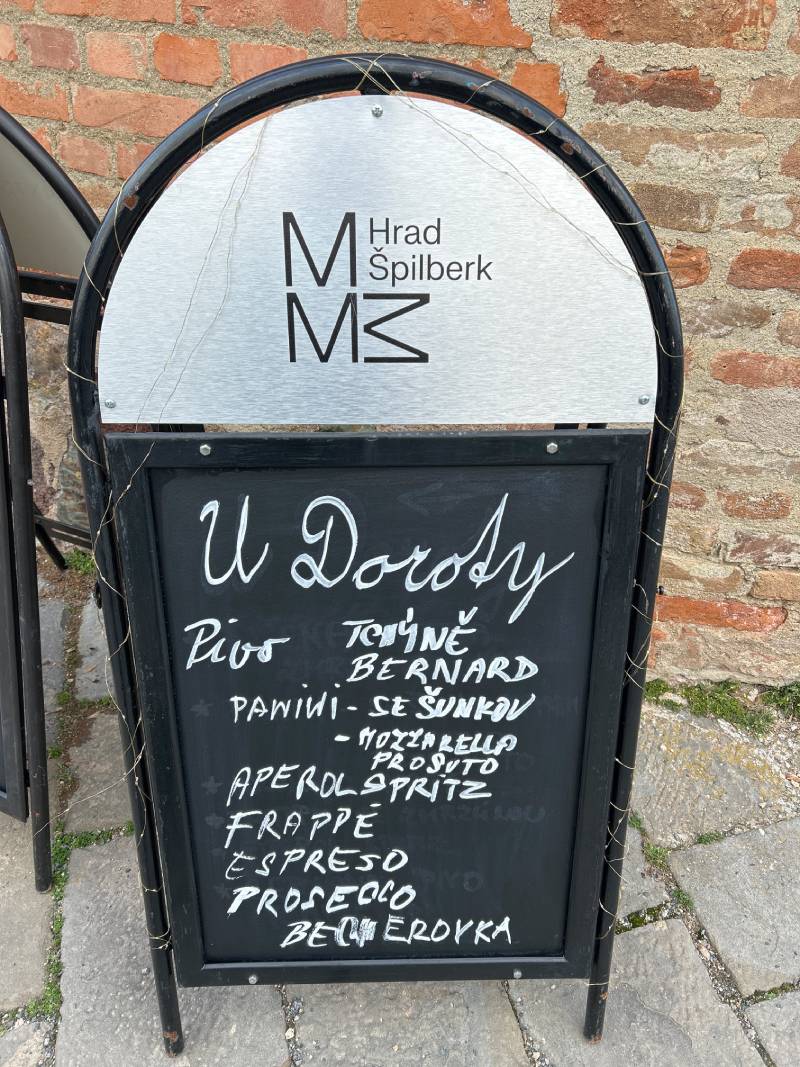 M Hrad
Špilberk
MM
U Doroty
Pivo TOČÝNĚ
BERNARD
PANINI - SE ŠUNKOV
- MOZZARELLA
PROSUTO
APEROL SPRITZ
FRAPPÉ
ESPRESO
PROSECCO
BECHEROVKA